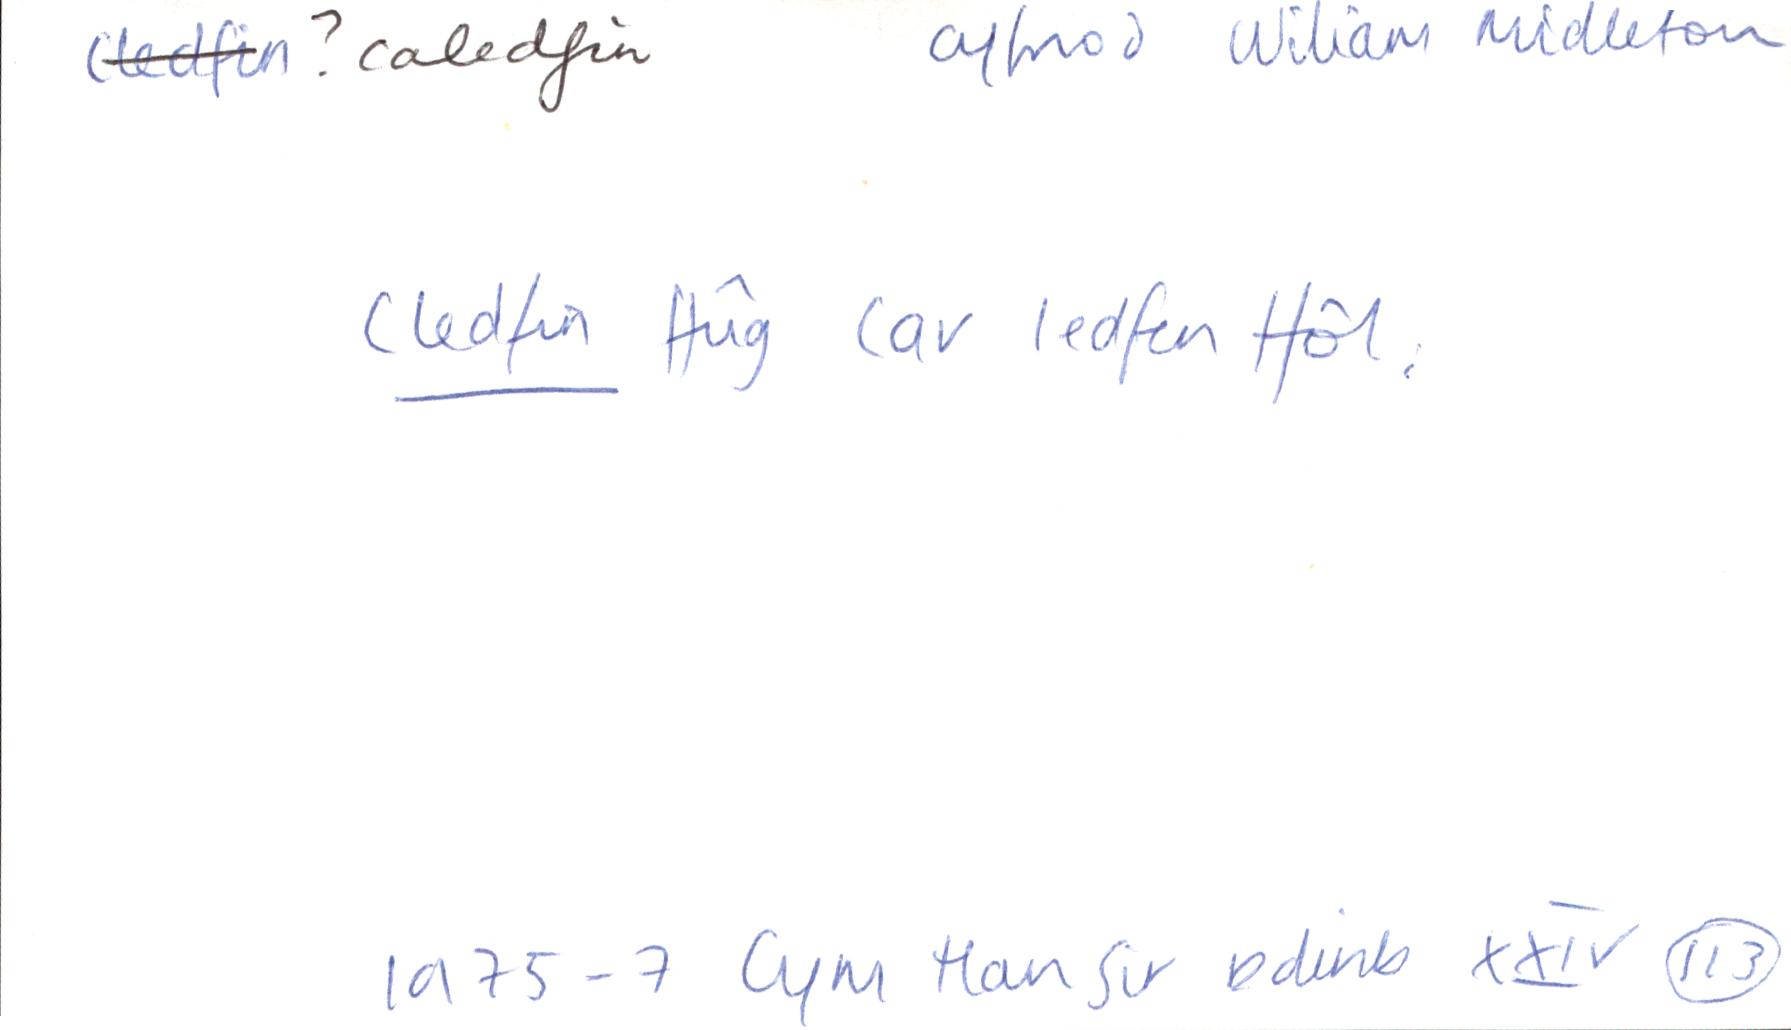 ~~Cledfin~~ ? caledfin cyfnod Wiliam Midleton
Cledfin Hûg Car ledfen Hôl.
1975-7 Cym Han Sir Ddinb XXIV 113